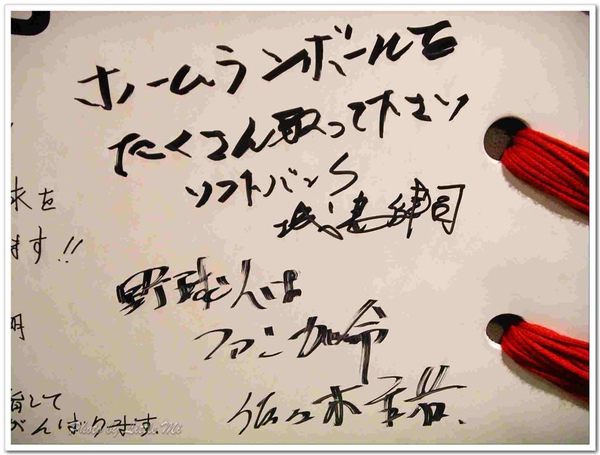 ホームランボールを
たくさん取って下さい
ソフトバンク
城島健司
野球人は
ファンが命
佐々木
求を
ます!!
明
して
がんばります.